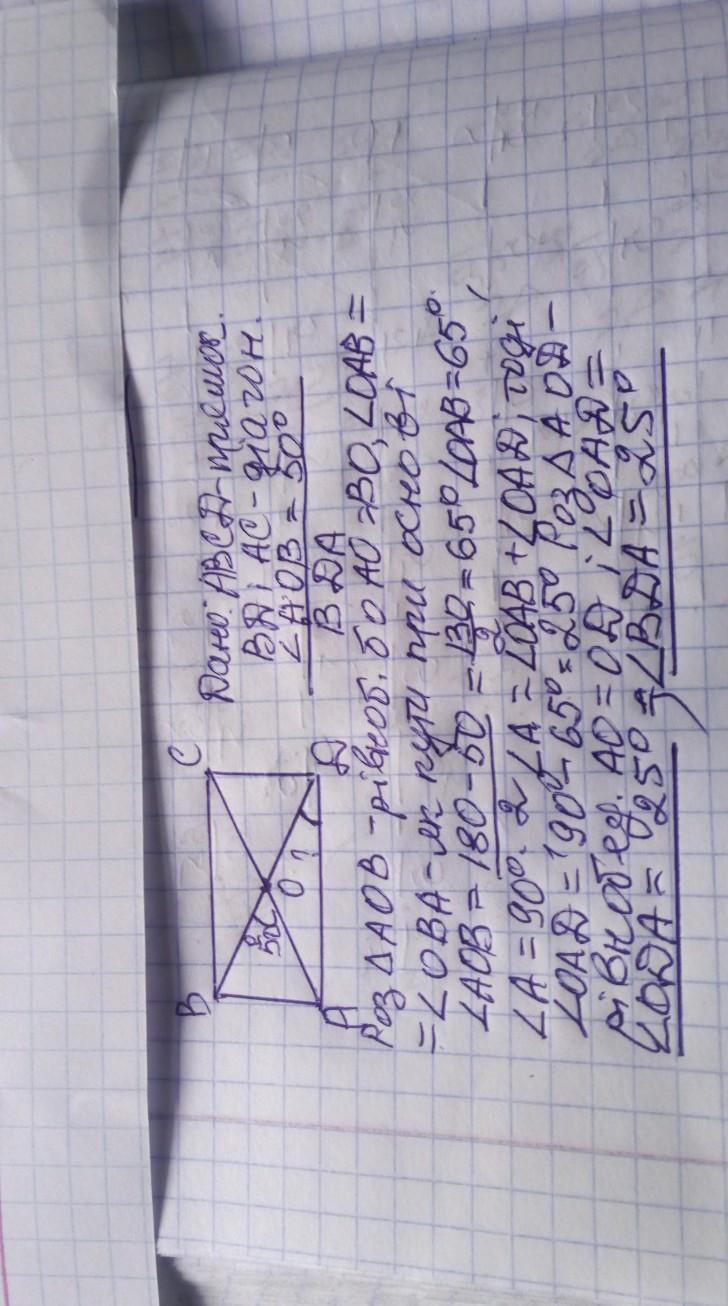 B C
50°
O ?
A D
Дано: ABCD - прямок.
BD і AC - діагон.
∠AOB = 50°
BDA
Роз ΔAOB - рівноб. бо AO = BO, ∠OAB =
= ∠OBA - як кути при основі
∠AOB = 180 - 50 = 130/2 = 65° ∠OAB = 65°.
∠A = 90°. 2 ∠A = ∠OAB + ∠OAD, тоді
∠OAD = 90° - 65° = 25° Роз Δ AOD -
рівнобед. AO = OD і ∠OAD =
∠ODA = 25° ⇒ ∠BDA = 25°